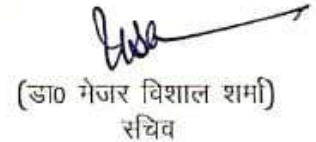 (डा0 मेजर विशाल शर्मा)
सचिव